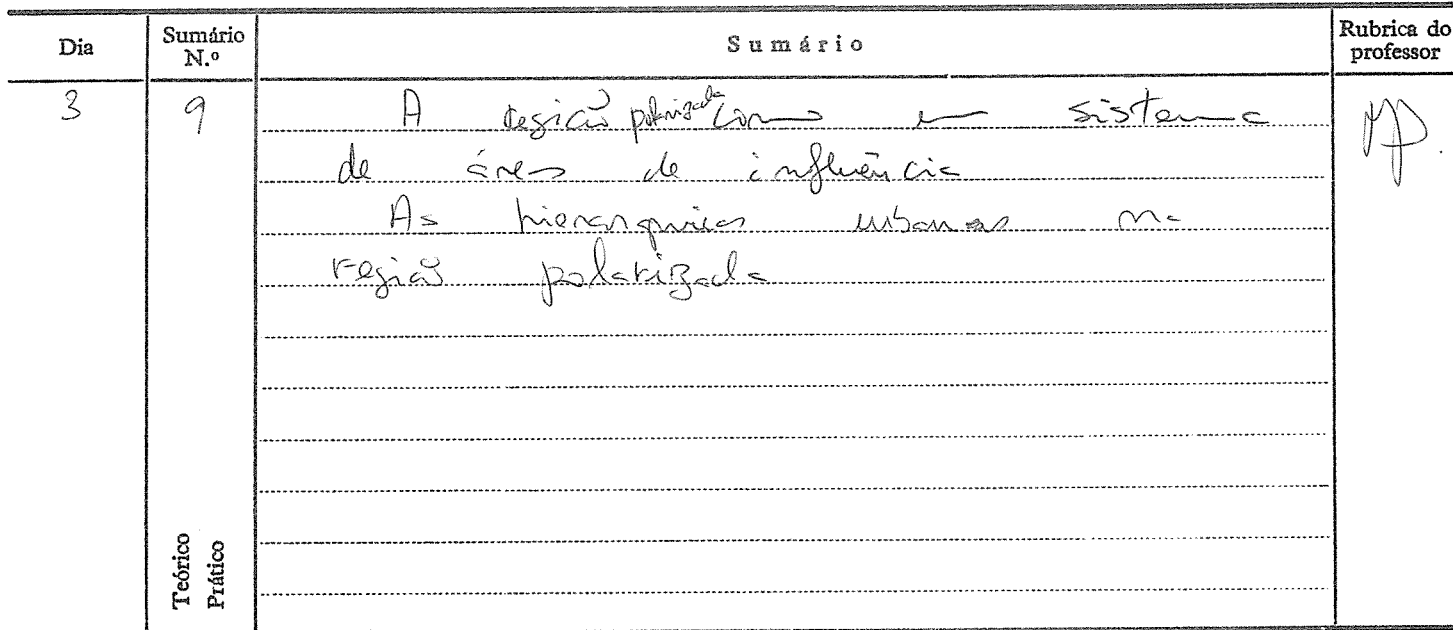 Dia
Sumário N.º
Sumário
Rubrica do professor
3
9
A região polarizada como um sistema
de áreas de influência
As hierarquias urbanas na
região polarizada
Teórico
Prático